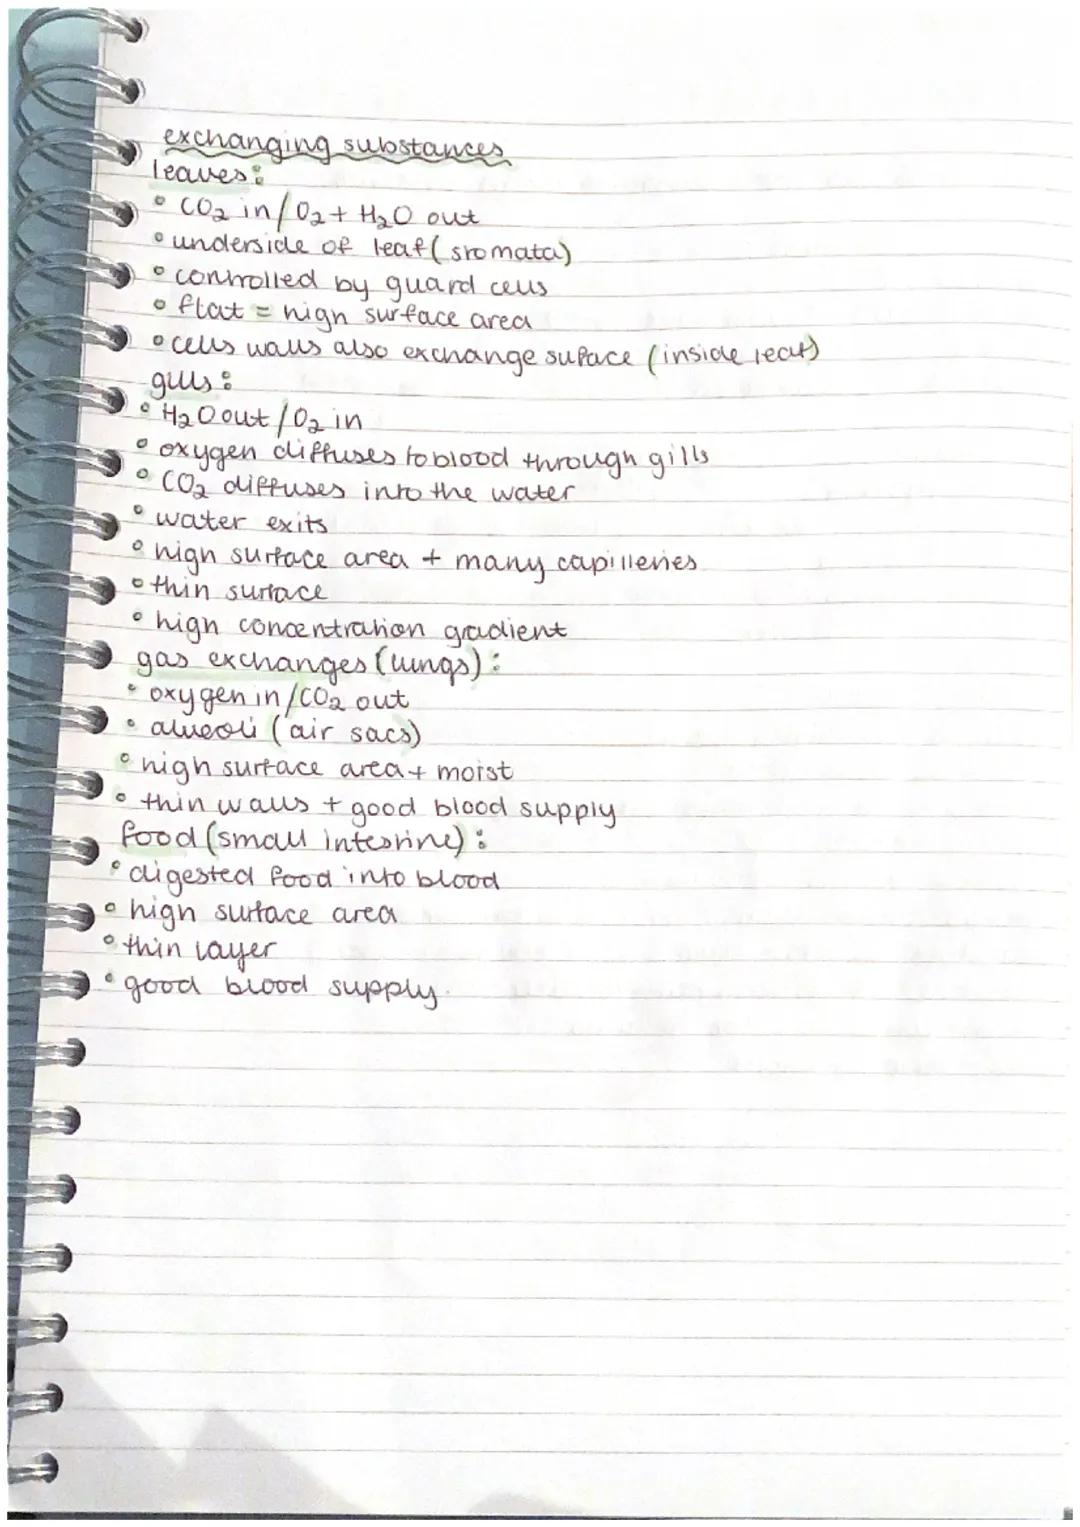 exchanging substances
leaves:
• CO₂ in / O₂ + H₂O out
• underside of leaf (stomata)
• controlled by guard cells
• flat = high surface area
• cells walls also exchange suface (inside leaf)
gills:
• H₂O out / O₂ in
• oxygen diffuses to blood through gills
• CO₂ diffuses into the water
• water exits
• high surface area + many capilleries
• thin surface
• high concentration gradient
gas exchanges (lungs):
• oxygen in / CO₂ out
• alveoli (air sacs)
• high surface area + moist
• thin walls + good blood supply
food (small intestine):
• digested food into blood
• high surface area
• thin layer
• good blood supply.